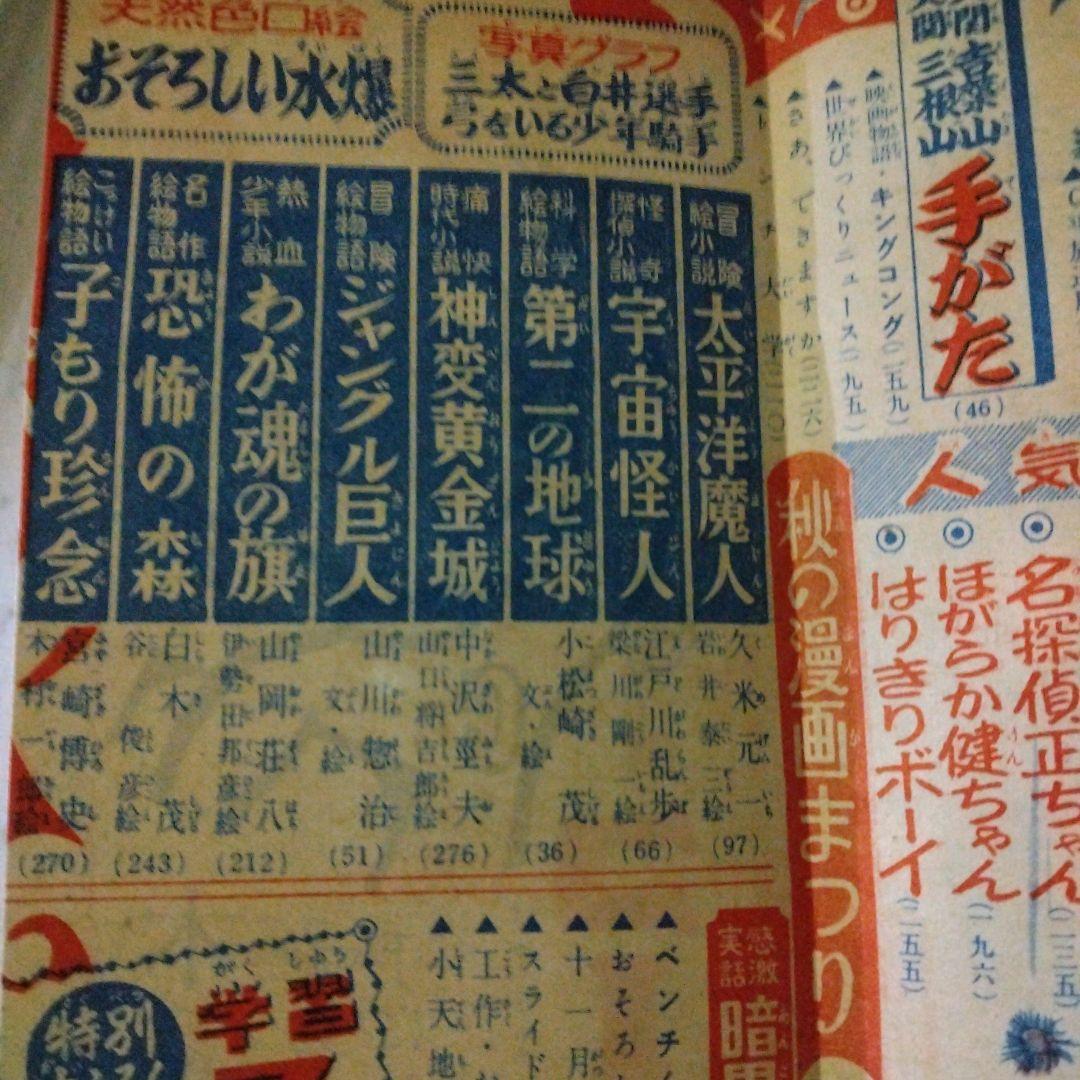 天然色口絵
おそろしい水爆
写真グラフ
三太と白井選手
弓をいる少年騎手
手がた
(46)
▲映画物語・キングコング(二五九)
▲世界びっくりニュース(一九五)
▲さあ、できますか(二二六)
冒険絵小説 太平洋魔人 久米元一 岩井泰三絵 (97)
怪奇探偵小説 宇宙怪人 江戸川乱歩 梁川剛一絵 (66)
科学絵物語 第二の地球 小松崎茂 文・絵 (36)
痛快時代小説 神変黄金城 中沢巠夫 山口将吉郎絵 (276)
冒険絵物語 ジャングル巨人 山川惣治 文・絵 (51)
熱血少年小説 わが魂の旗 山岡荘八 伊勢田邦彦絵 (212)
名作絵物語 恐怖の森 白木茂 谷俊彦絵 (243)
こっけい絵物語 子もり珍念 宮崎博史 木村一郎絵 (270)
人気
秋の漫画まつり
名探偵正ちゃん(一三五)
ほがらか健ちゃん(一九六)
はりきりボーイ(二五五)
感激実話
▲ベンチ
▲おそろ
▲十一月
▲スライド
▲工作・
▲小天地
特別
学習